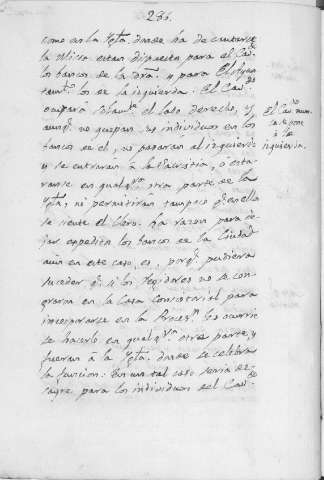 286.
como en la Ygl.ª donde ha de cantarse
la Misa estan dispuestos para el Cav.do
los bancos de la dra. y para El Ayun
tam.to los de la izquierda. El Cav.do
ocupará solam.te el lado derecho, y
aunq.e no quepan sus individuos en los
bancos de el, no pasaran al izquierdo
y se entrarán à la Sacristia, ò esta-
ranse en qualq.ra otra parte de la
Ygl.ª, ni permitiran tampoco q.e en ella
se siente el Clero. Ha razon para de-
jar expeditos los bancos de la Ciudad
aun en este caso es, porq.e pudiera
suceder q.e si los Regidores no se con-
gregan en la Casa Consistorial para
incorporarse en la Proces.n les ocurrie
se hacerlo en qualq.ra otra parte, y
fueran à la Ygl.ª donde se celebra
la funcion: En un tal caso seria de-
sayre para los individuos del Cav.do
El Cav.do nun-
ca se pone
à la
izquierda.